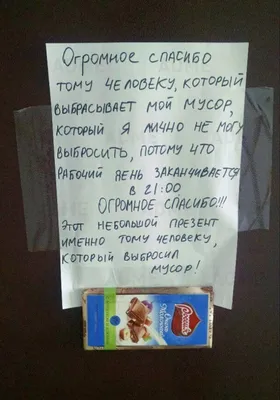 Огромное спасибо
тому человеку, который
выбрасывает мой мусор,
который я лично не могу
выбросить, потому что
рабочий день заканчивается
в 21:00
Огромное спасибо!!!
Этот небольшой презент
именно тому человеку,
который выбросил
мусор!
Россия